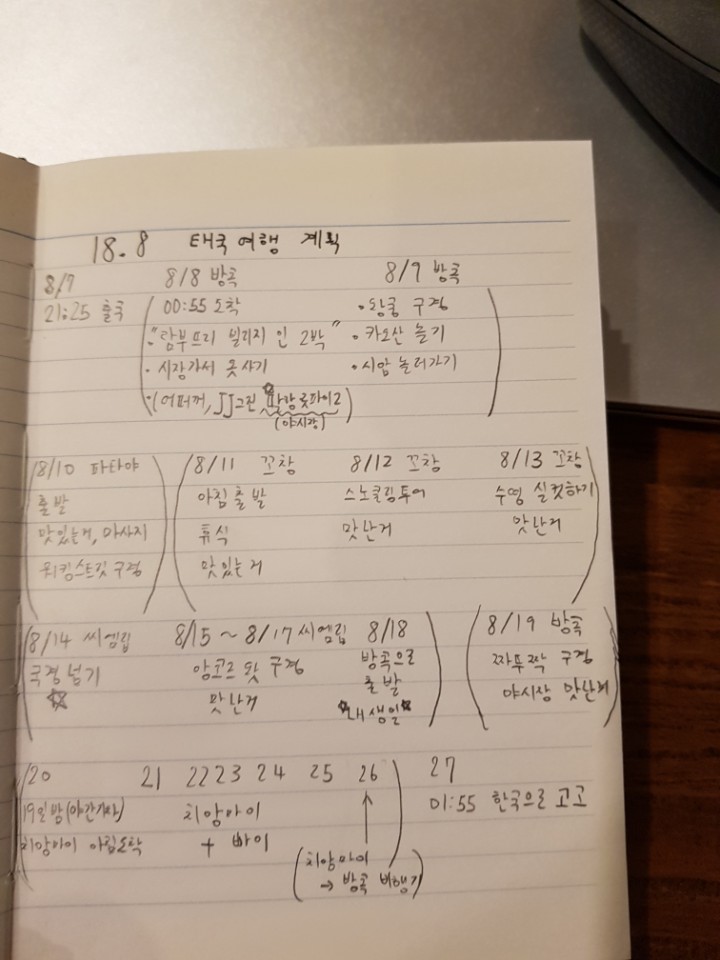 18.8 태국여행 계획
8/7 8/8 방콕 8/9 방콕
21:25 출국 00:55 도착 · 왕궁 구경
· "람부뜨리 빌리지 인 2박" · 카오산 놀기
· 시장가서 옷사기 · 시암 놀러가기
· (어퍼꺼, JJ그린, 딸랏롯파이2)
(야시장)
8/10 파타야 8/11 꼬창 8/12 꼬창 8/13 꼬창
출발 아침 출발 스노클링 투어 수영 실컷하기
맛있는거, 마사지 휴식 맛난거 맛난거
워킹스트릿 구경 맛있는거
8/14 씨엠립 8/15 ~ 8/17 씨엠립 8/18 8/19 방콕
국경 넘기 앙코르 왓 구경 방콕으로 짜뚜짝 구경
☆ 맛난거 출발 야시장 맛난거
☆내생일☆
20 21 22 23 24 25 26 27
19일밤(야간기차) 치앙마이 01:55 한국으로 고고
치앙마이 아침도착 + 빠이
(치앙마이
→ 방콕 비행기)